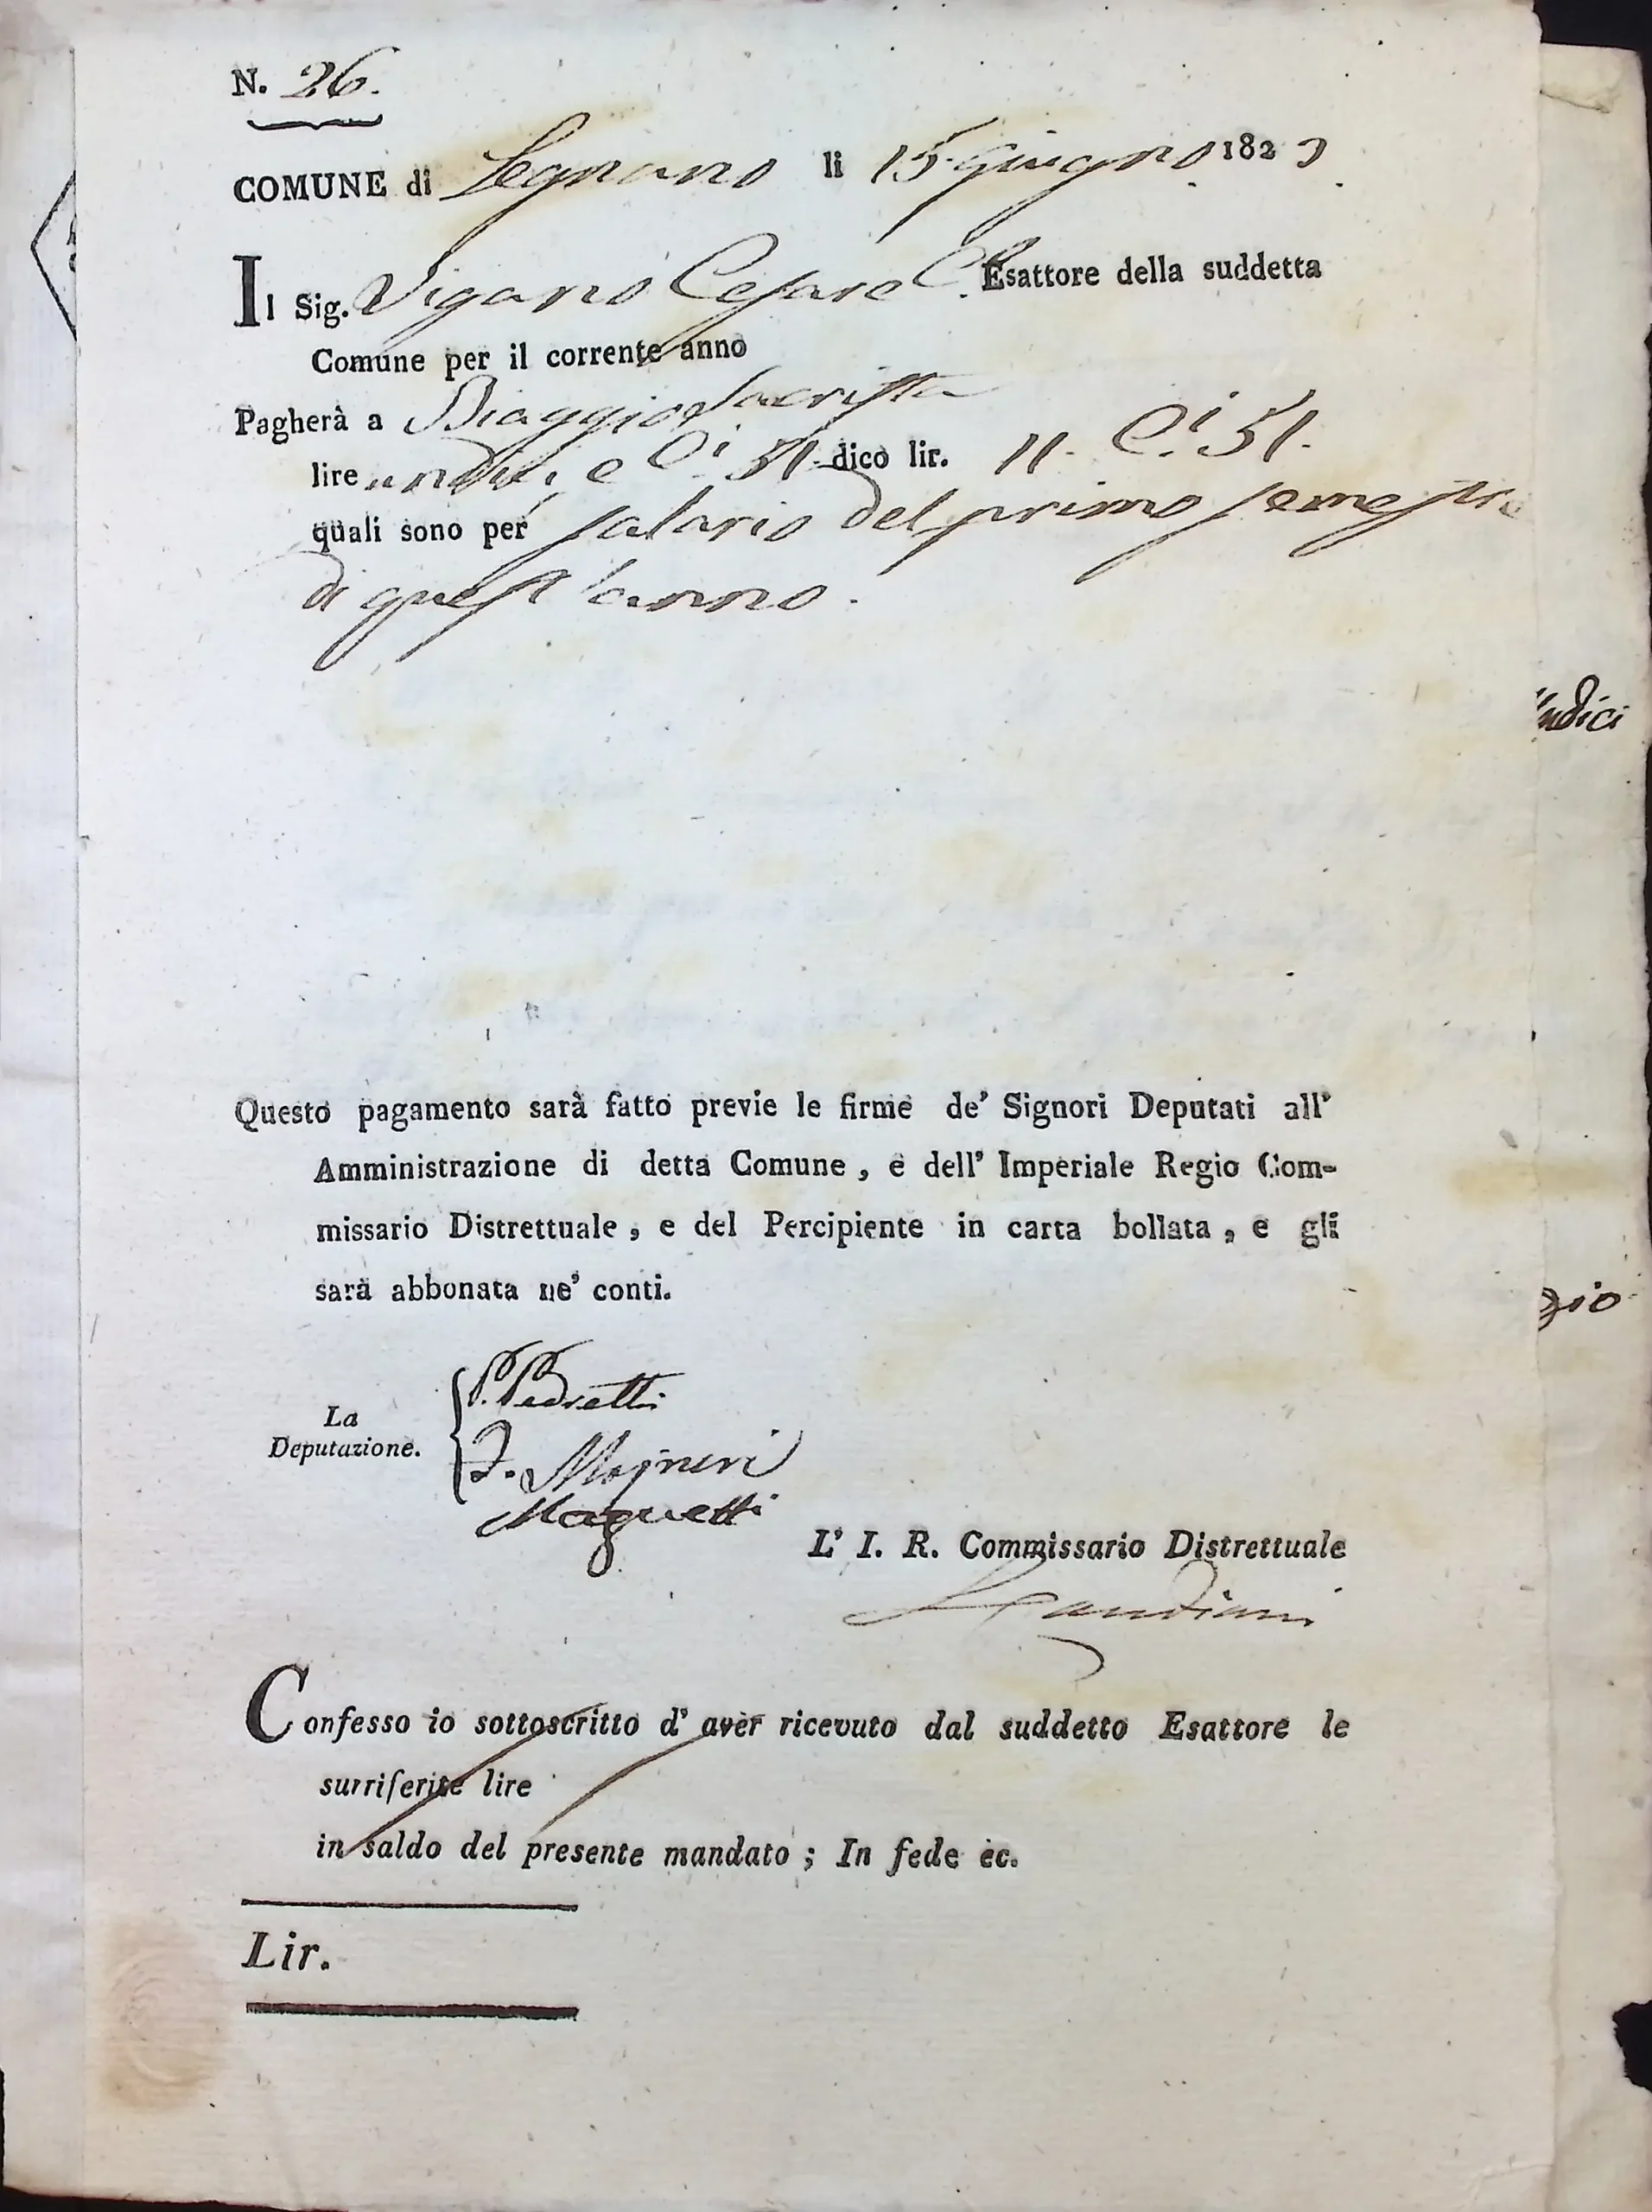 N. 26.
COMUNE di Legnano li 15 giugno 1823.
Il Sig. Viganò Cesare Esattore della suddetta
Comune per il corrente anno
Pagherà a Biaggio Sacrista
lire undici, e C.i 51. dico lir. 11. C.i 51.
quali sono per salario del primo semestre
di quest'anno.
udici
Questo pagamento sarà fatto previe le firme de' Signori Deputati all'
Amministrazione di detta Comune, e dell' Imperiale Regio Com-
missario Distrettuale, e del Percipiente in carta bollata, e gli
sarà abbonata ne' conti.
gio
La
Deputazione.
P. Pedretti
Magnetti
L' I. R. Commissario Distrettuale
Confesso io sottoscritto d' aver ricevuto dal suddetto Esattore le
surriferite lire
in saldo del presente mandato; In fede ec.
Lir.